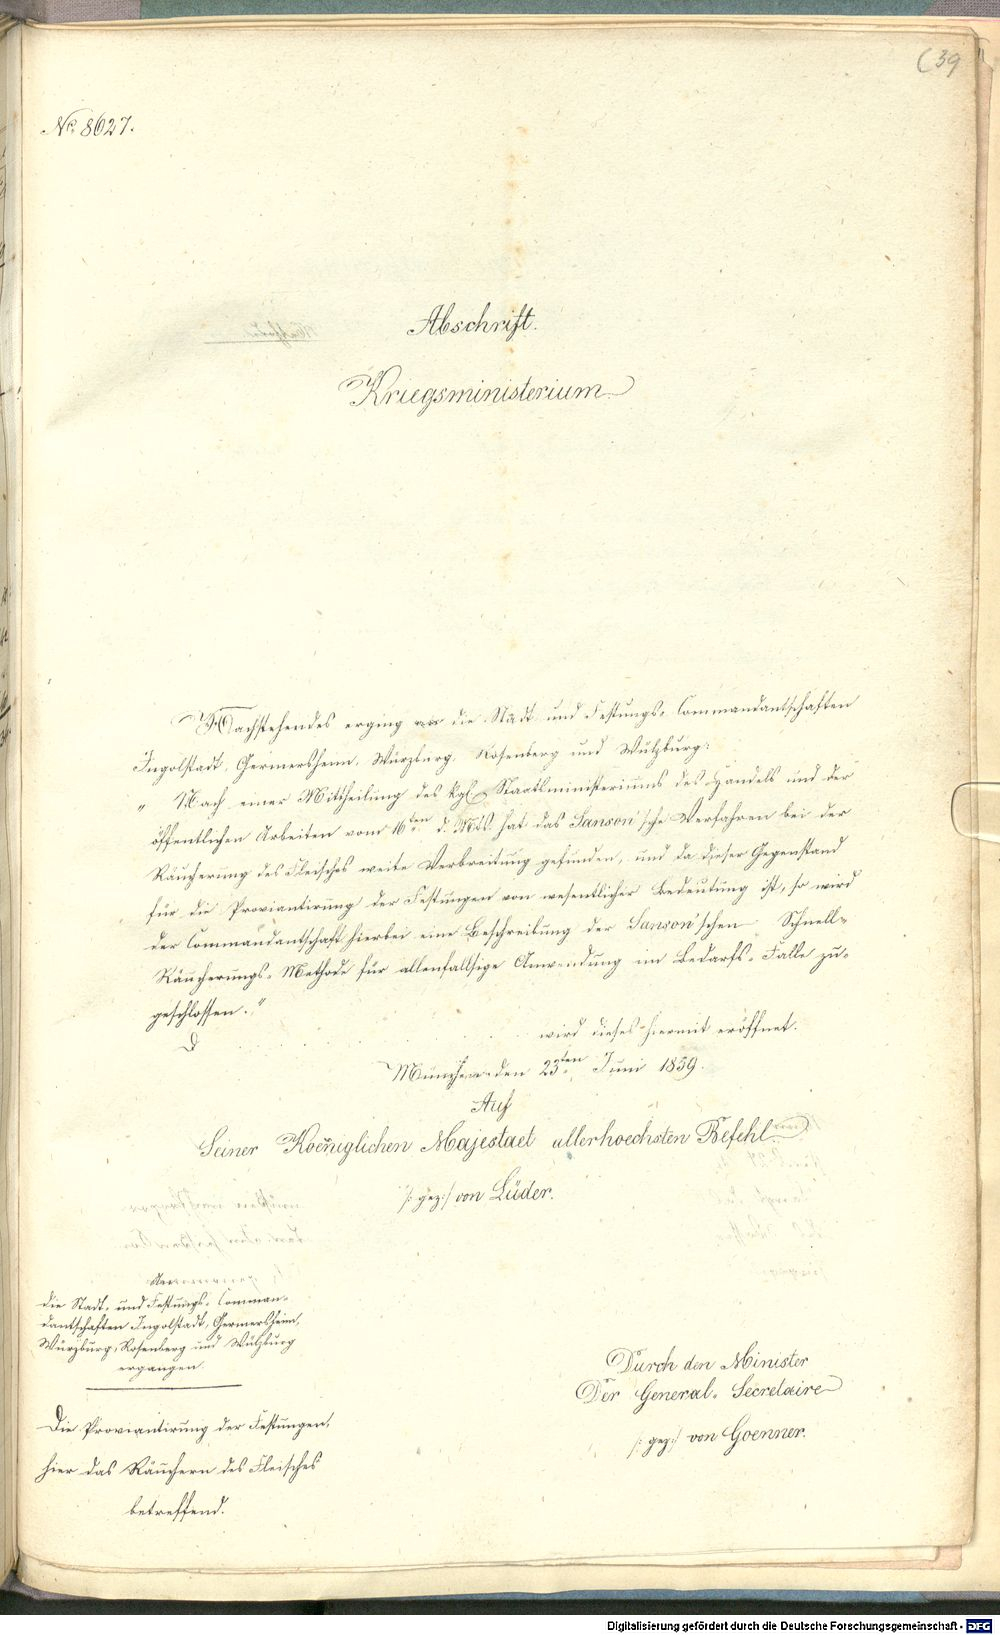 (39
No. 8627.
Abschrift.
Kriegsministerium
Nachstehendes erging an die Stadt- und Festungs-Commandantschaften
Ingolstadt, Germersheim, Würzburg, Rosenberg und Wülzburg:
„ Nach einer Mittheilung des kgl. Staatsministeriums des Handels und der
öffentlichen Arbeiten vom 16ten d. Mts. hat das Sanson'sche Verfahren bei der
Räucherung des Fleisches weite Verbreitung gefunden, und da dieser Gegenstand
für die Proviantirung der Festungen von wesentlicher Bedeutung ist, so wird
der Commandantschaft hierbei eine Beschreibung der Sanson'schen Schnell-
Räucherungs-Methode für allenfallsige Anwendung im Bedarfs-Falle zu-
geschlossen."
wird dieses hiermit eröffnet.
München den 23ten Juni 1859.
Auf
Seiner Koeniglichen Majestaet allerhoechsten Befehl
/: gez:/ von Lüder.
die Stadt- und Festungs-Comman-
dantschaften Ingolstadt, Germersheim,
Würzburg, Rosenberg und Wülzburg
ergangen.
Durch den Minister
Der General-Secretaire
/: gez:/ von Goenner.
Die Proviantirung der Festungen,
hier das Räuchern des Fleisches
betreffend.
Digitalisierung gefördert durch die Deutsche Forschungsgemeinschaft - DFG